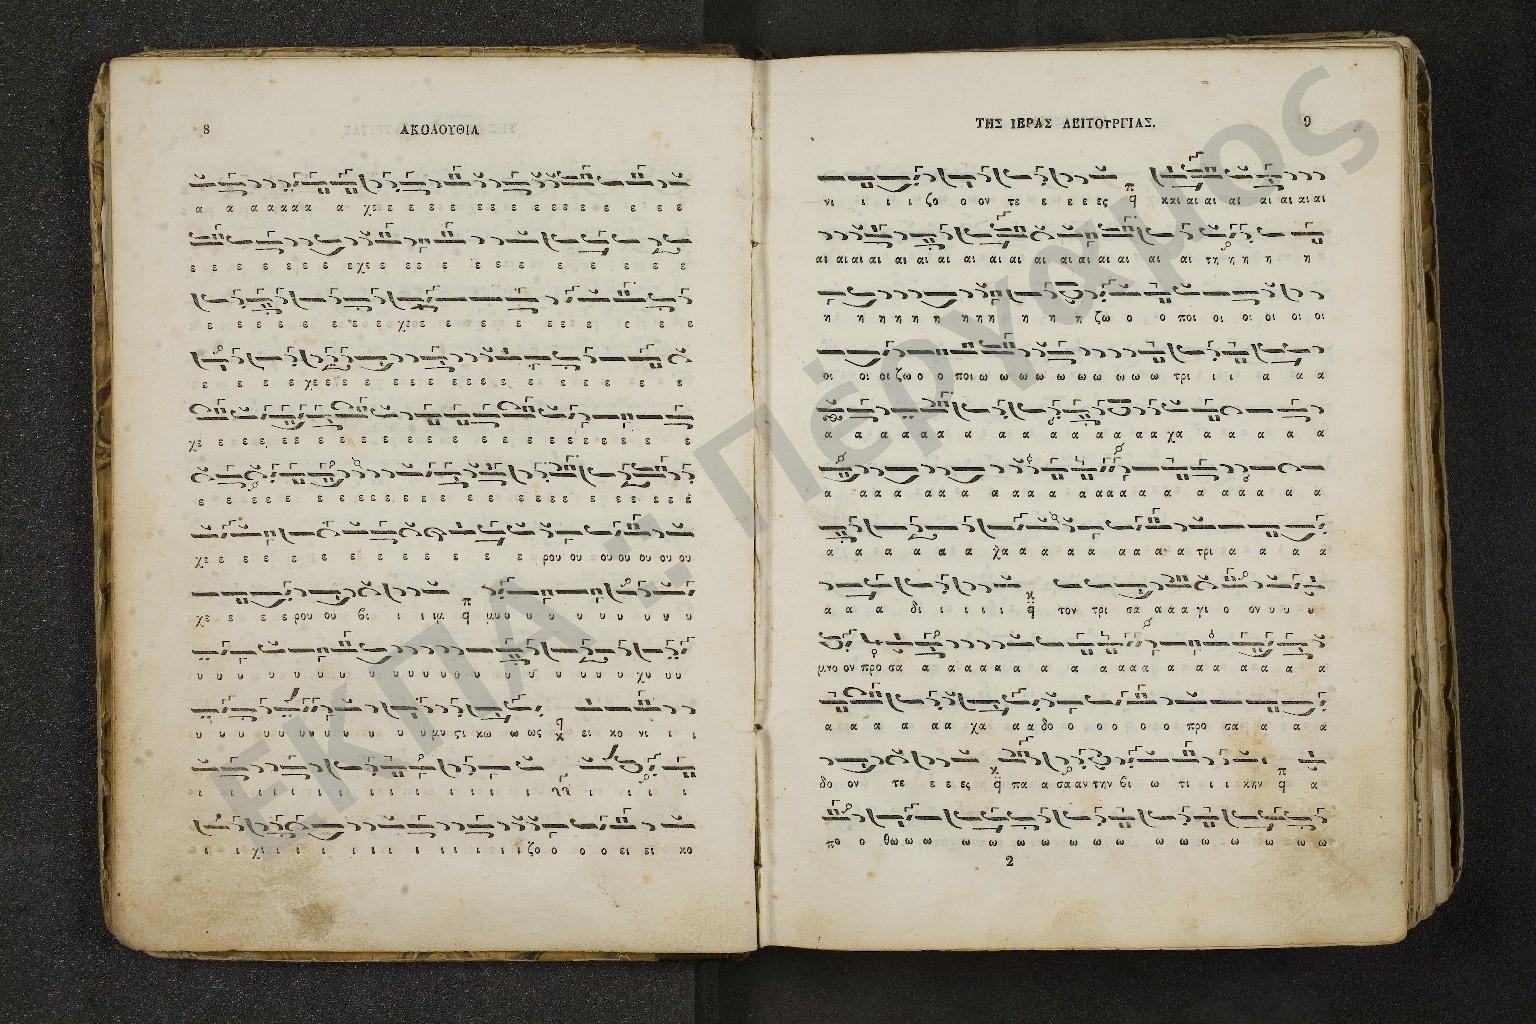 8
ΑΚΟΛΟΥΘΙΑ
α α α α α α α χε ε ε ε ε ε ε ε ε ε ε ε ε ε ε
ε ε ε ε ε ε ε ε χε ε ε ε ε ε ε ε ε ε ε ε
ε ε ε ε ε ε ε ε χε ε ε ε ε ε ε ε ε ε
ε ε ε ε χε ε ε ε ε ε ε ε ε ε ε ε ε ε ε
χε ε ε ε ε ε ε ε ε ε ε ε ε ε ε ε ε ε ε ε ε ε ε ε ε
ε ε ε ε ε ε ε ε ε ε ε ε ε ε ε ε ε ε ε ε ε ε ε
χε ε ε ε ε ε ε ε ε ε ε ε ε ρου ου ου ου ου ου ου
χε ε ε ε ε ρου ου βι ι ι ιμ μυ υ υ υ υ υ υ υ υ υ
υ υ υ υ υ υ υ υ υ υ υ υ υ υ υ υ υ χυ υ υ
υ υ υ υ υ υ υ υ υ υ υ υ μυ ςι κω ω ως ει κο νι ι ι
ι ι ι ι ι ι ι ι ι ι ι ι ι ι ι ι ι
ι ι χι ι ι ι ι ι ι ι ι ι ι ι ι ι ζο ο ο ο ει ει κο
ΤΗΣ ΙΕΡΑΣ ΛΕΙΤΟΥΡΓΙΑΣ.
9
νι ι ι ι ζο ο ον τε ε ε ε ες και αι αι αι αι αι αι αι
αι αι αι αι αι αι αι αι αι αι αι αι αι αι αι αι τη η η η η
η η η η η η η η η η η η ζω ο ο ποι οι οι οι οι οι
οι οι οι ζω ο ο ποι ω ω ω ω ω ω ω ω ω ω τρι ι ι α α α
α α α α α α α α α α α α α α χα α α α α α
α α α α α α α α α α α α α α α α α α α α α α
α α α α α α α χα α α α α α α α α α τρι α α α α
α α α δι ι ι ι ι τον τρι σα α α α γι ο ον υ υ υ
μνο ον προ σα α α α α α α α α α α α α α α α α α α α
α α α α α α χα α α δο ο ο ο ο ο προ σα α α α
δο ον τε ε ε ες πα α σα αν την βι ω τι ι ι κην α
πο ο θω ω ω ω ω ω ω ω ω ω ω ω ω ω ω ω ω ω
2
ΕΚΠΑ .:. Πέργαμος